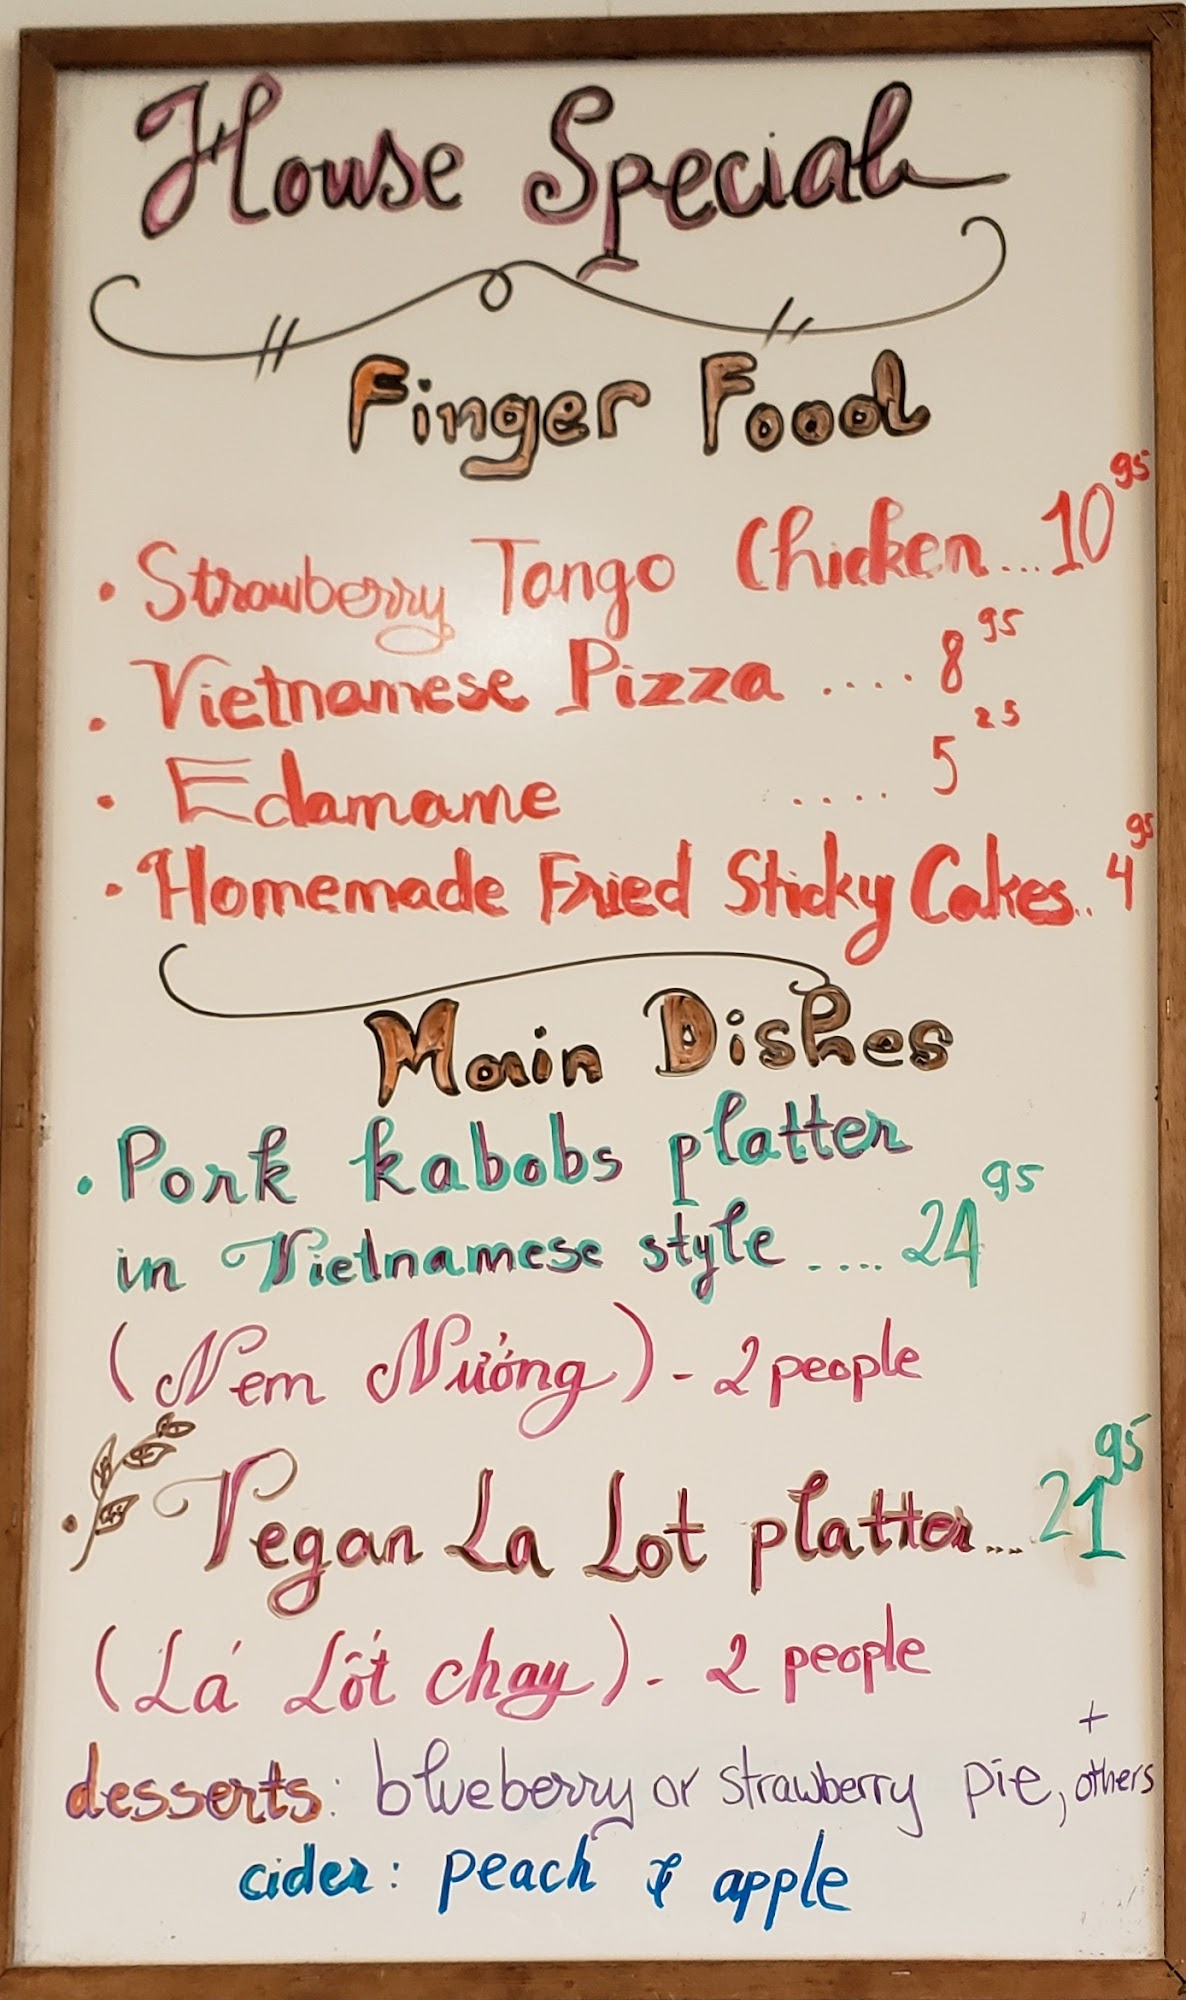 House Special
Finger Food
• Strawberry Tango Chicken...10 95
• Vietnamese Pizza ....8 95
• Edamame ....5 25
• Homemade Fried Sticky Cakes..4 95
Main Dishes
• Pork kabobs platter
in Vietnamese style ....24 95
(Nem Nướng) - 2 people
• Vegan La Lot platter...21 95
(Lá Lốt chay) - 2 people
desserts: blueberry or strawberry pie, + others
cider: peach & apple